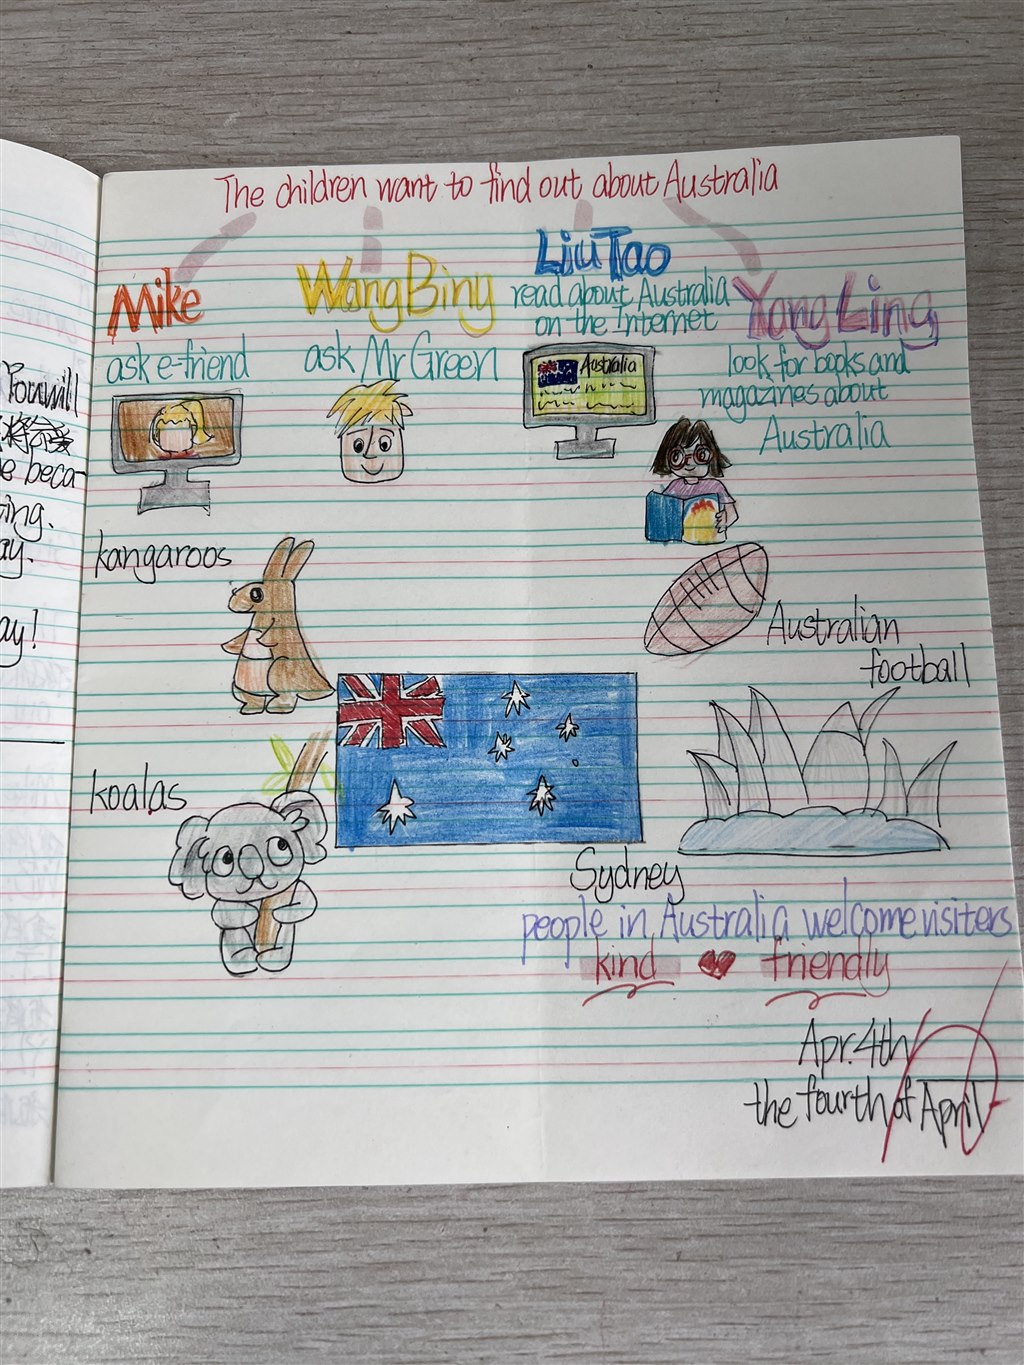 The children want to find out about Australia
Mike
ask e-friend
Wang Bing
ask Mr Green
Liu Tao
read about Australia
on the Internet
Australia
Yang Ling
look for books and
magazines about
Australia
kangaroos
Australian
football
koalas
Sydney
people in Australia welcome visiters
kind friendly
Apr. 4th
the fourth of April
You will
ing.
ay.
ay!